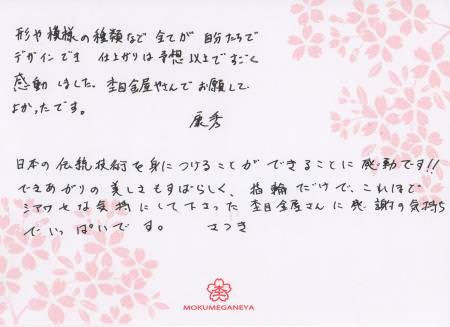 形や模様の種類など全てが自分たちで
デザインでき 仕上がりは予想以上ですごく
感動しました。杢目金屋やさんでお願いして
よかったです。
康秀
日本の伝統技術を身につけることができることに感動です!!
できあがりの美しさもすばらしく、指輪だけで、これほど
シアワセな気持にして下さった杢目金屋さんに感謝の気持ち
でいっぱいです。 さつき
MOKUMEGANEYA